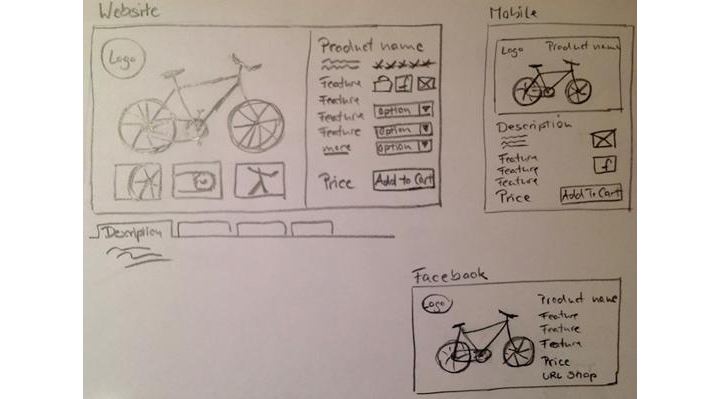 Website
Logo
Product name
Feature
f
Feature
Feature
option
Feature
option
more
option
Price
Add to Cart
Description
Mobile
Logo
Product name
Description
Feature
f
Feature
Feature
Price
Add To Cart
Facebook
Logo
Product name
Feature
Feature
Feature
Price
URL Shop